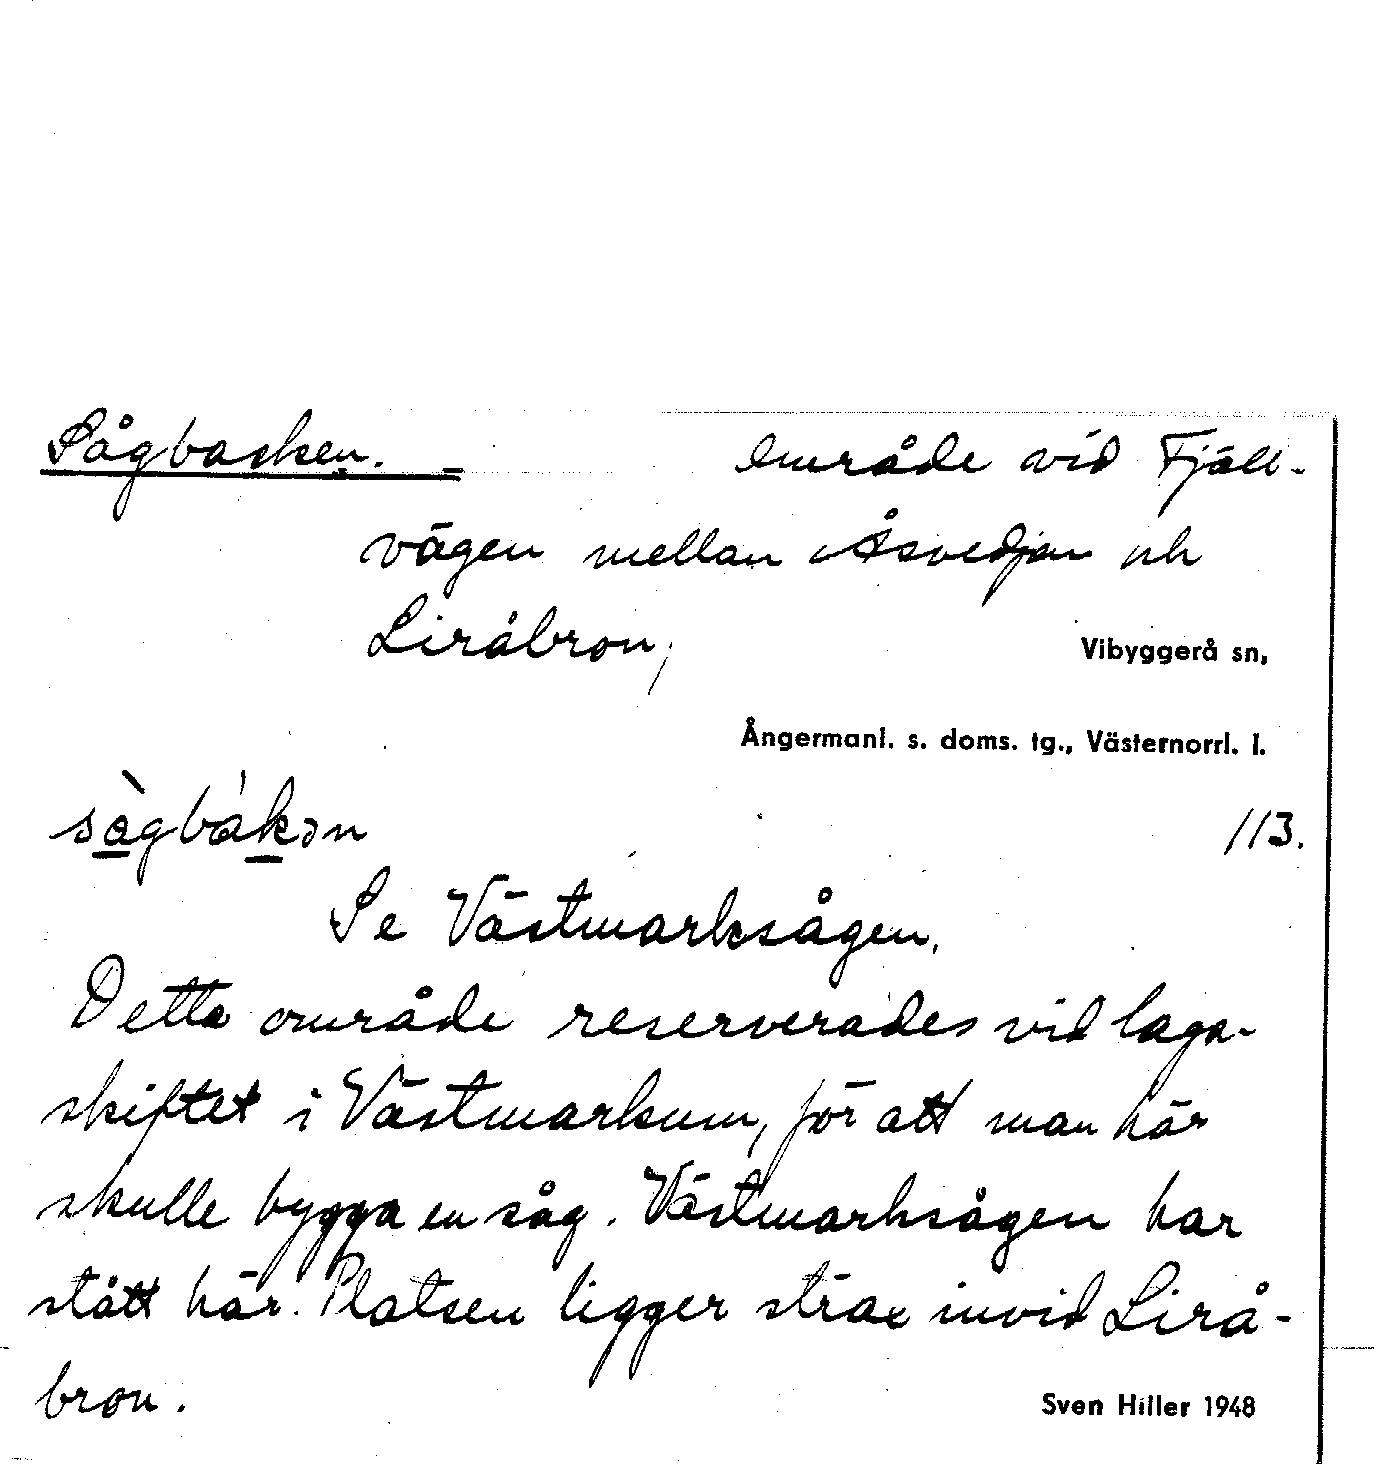 Sågbacken. = område vid Fjäll-
vägen mellan Åsvedjan och
Liråbron,
Vibyggerå sn,
Ångermanl. s. doms. tg., Västernorrl. l.
sågbakən
113.
Se Västmarksågen.
Detta område reserverades vid laga-
skiftet i Västmarkum, för att man här
skulle bygga en såg. Västmarksågen har
stått här. Platsen ligger strax invid Lirå-
bron.
Sven Hiller 1948